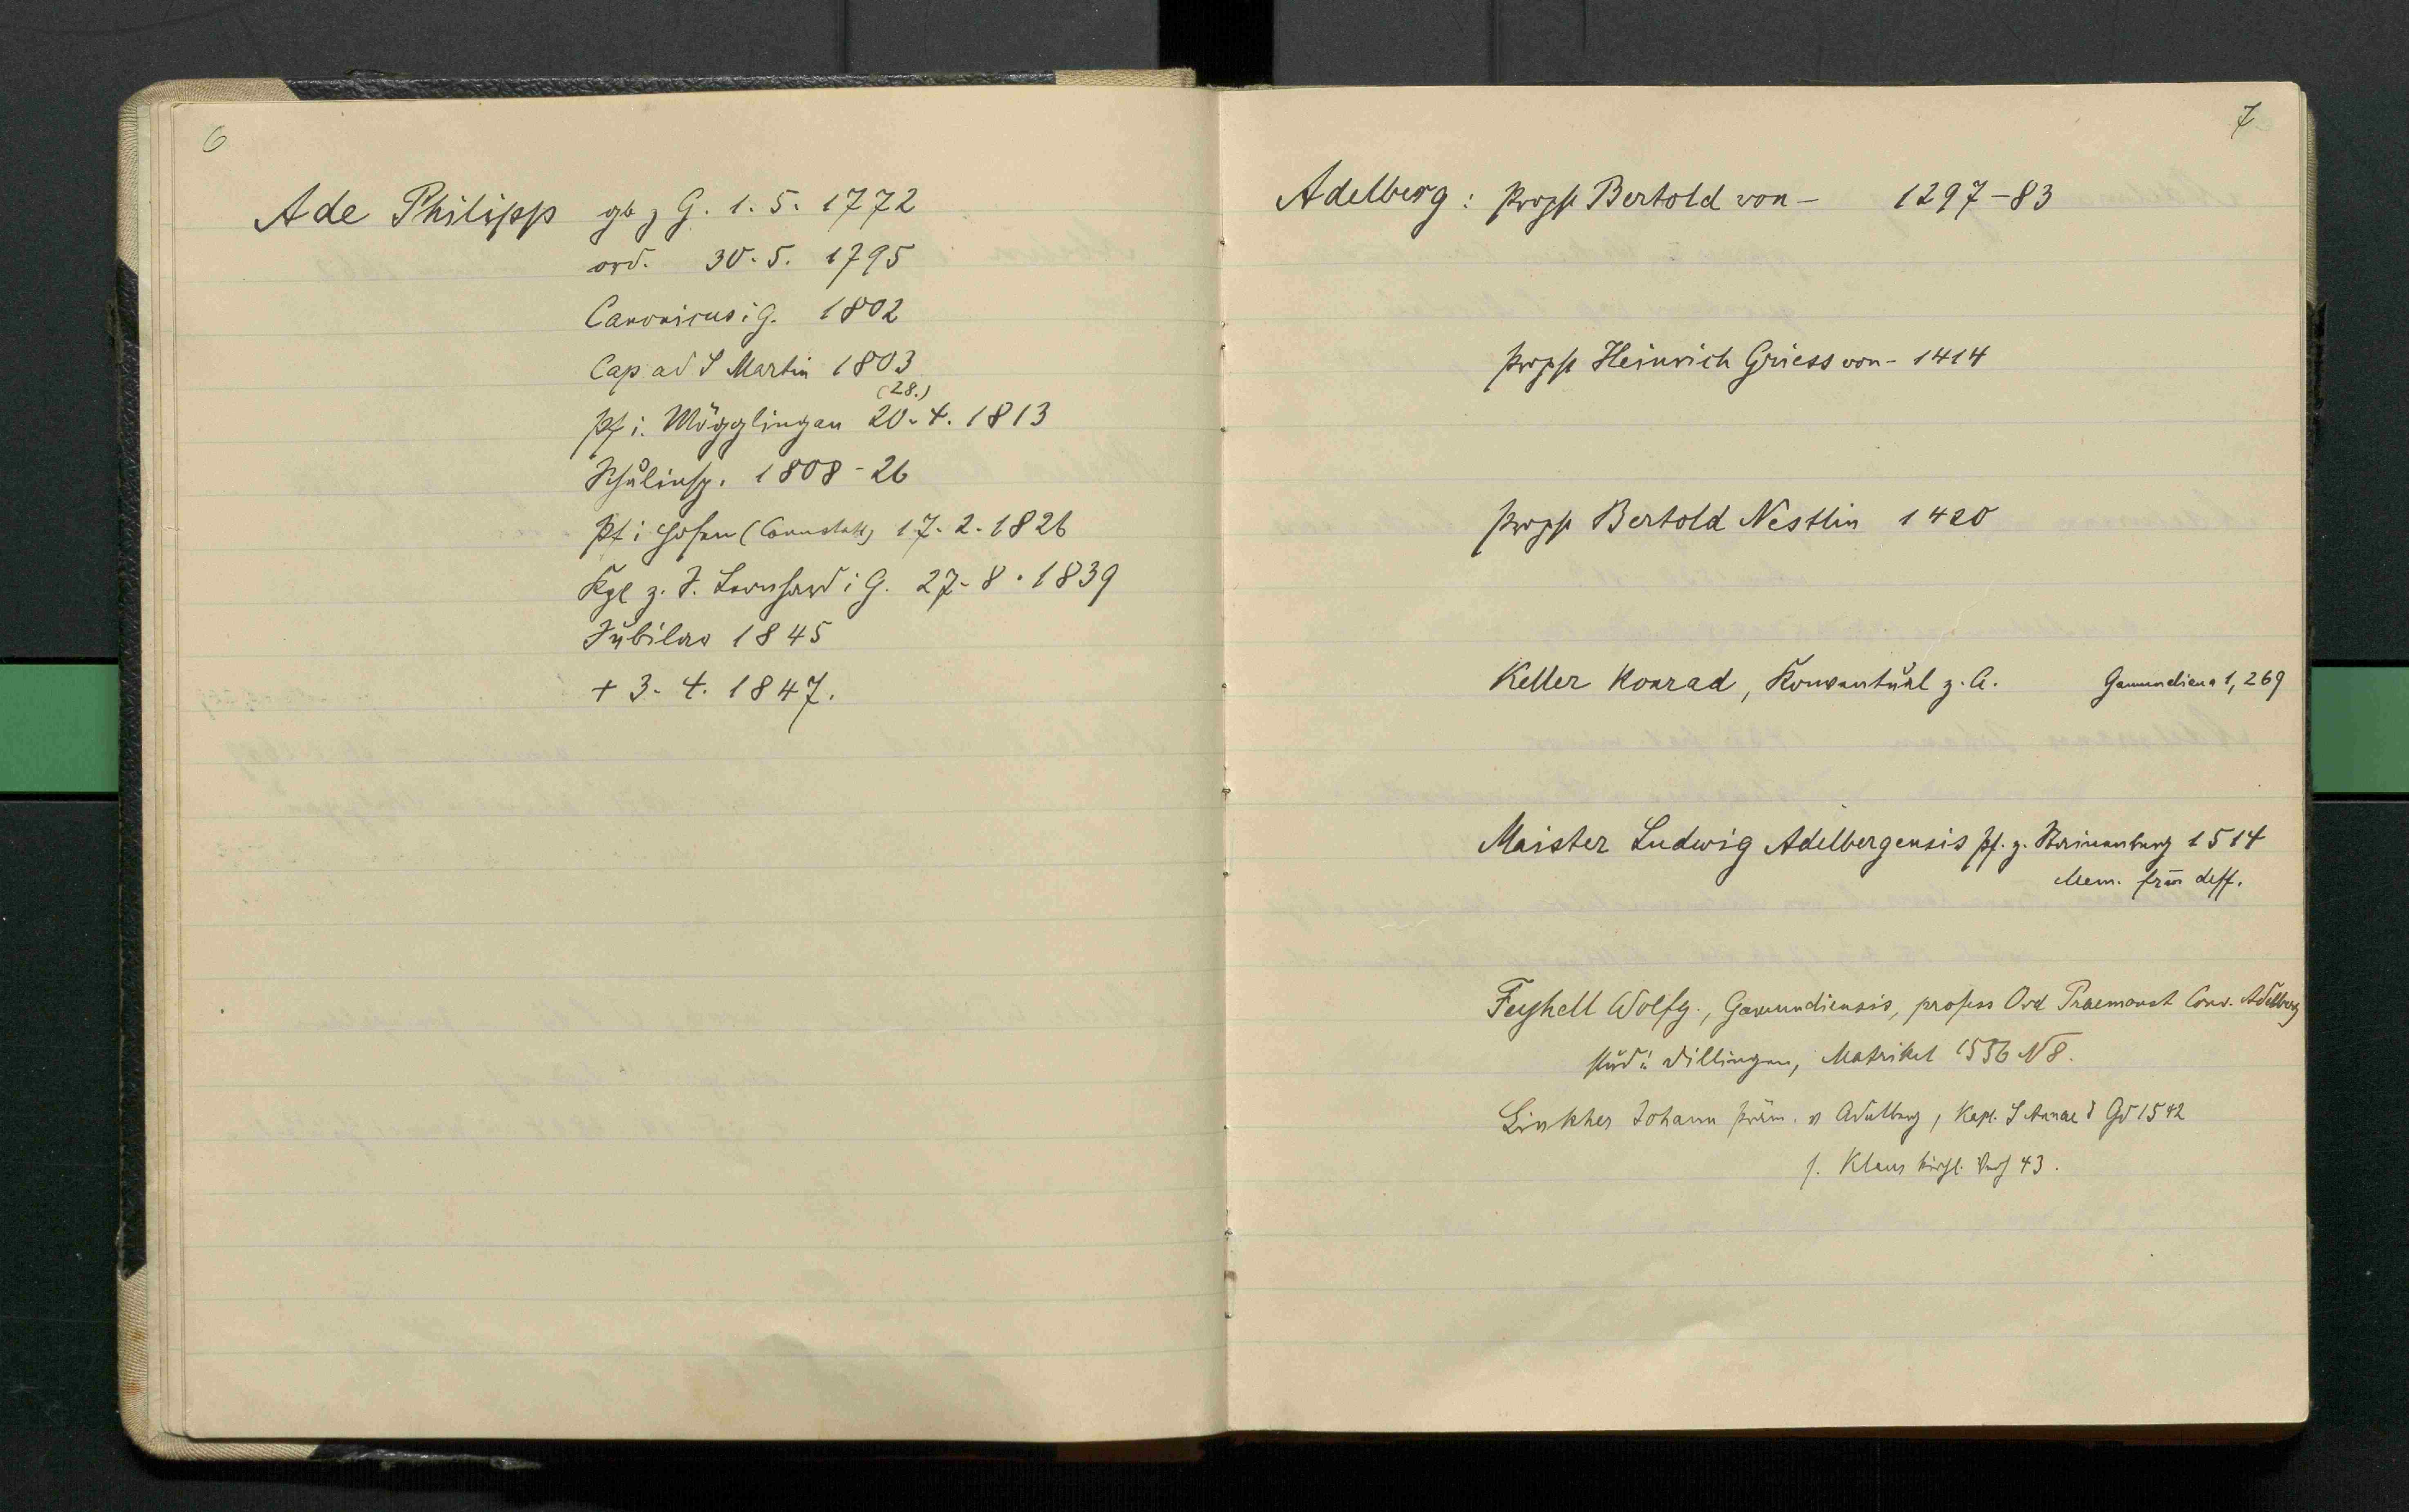 6
Ade Philipp gb z G. 1. 5. 1772
ord. 30. 5. 1795
Canonicus i G. 1802
Cap ad S Martin 1803
(28.)
Pf i. Mögglingen 20. 4. 1813
Schulinsp. 1808-26
Pf i Hofen (Cannstatt) 17. 2. 1826
Kpl z. S. Leonhard i G. 27. 8. 1839
Jubilar 1845
+ 3. 4. 1847.
7
Adelberg: Propst Bertold von - 1297-83
Propst Heinrich Griess von - 1414
Propst Bertold Nestlin 1420
Keller Konrad, Konventual z. A. Gamundiana 1, 269
Maister Ludwig Adelbergensis Pf. z. 1514
Mem. frm deff.
Feyhell Wolfg., Gamundiensis, profess Ord Praemonst Conv. Adelberg
stud i Dillingen, Matrikel 1556 N 8.
Linkher Johann Präm. v Adelberg, Kapl. S Annae i Gd 1542
s. Klaus kirchl. Verh 43.